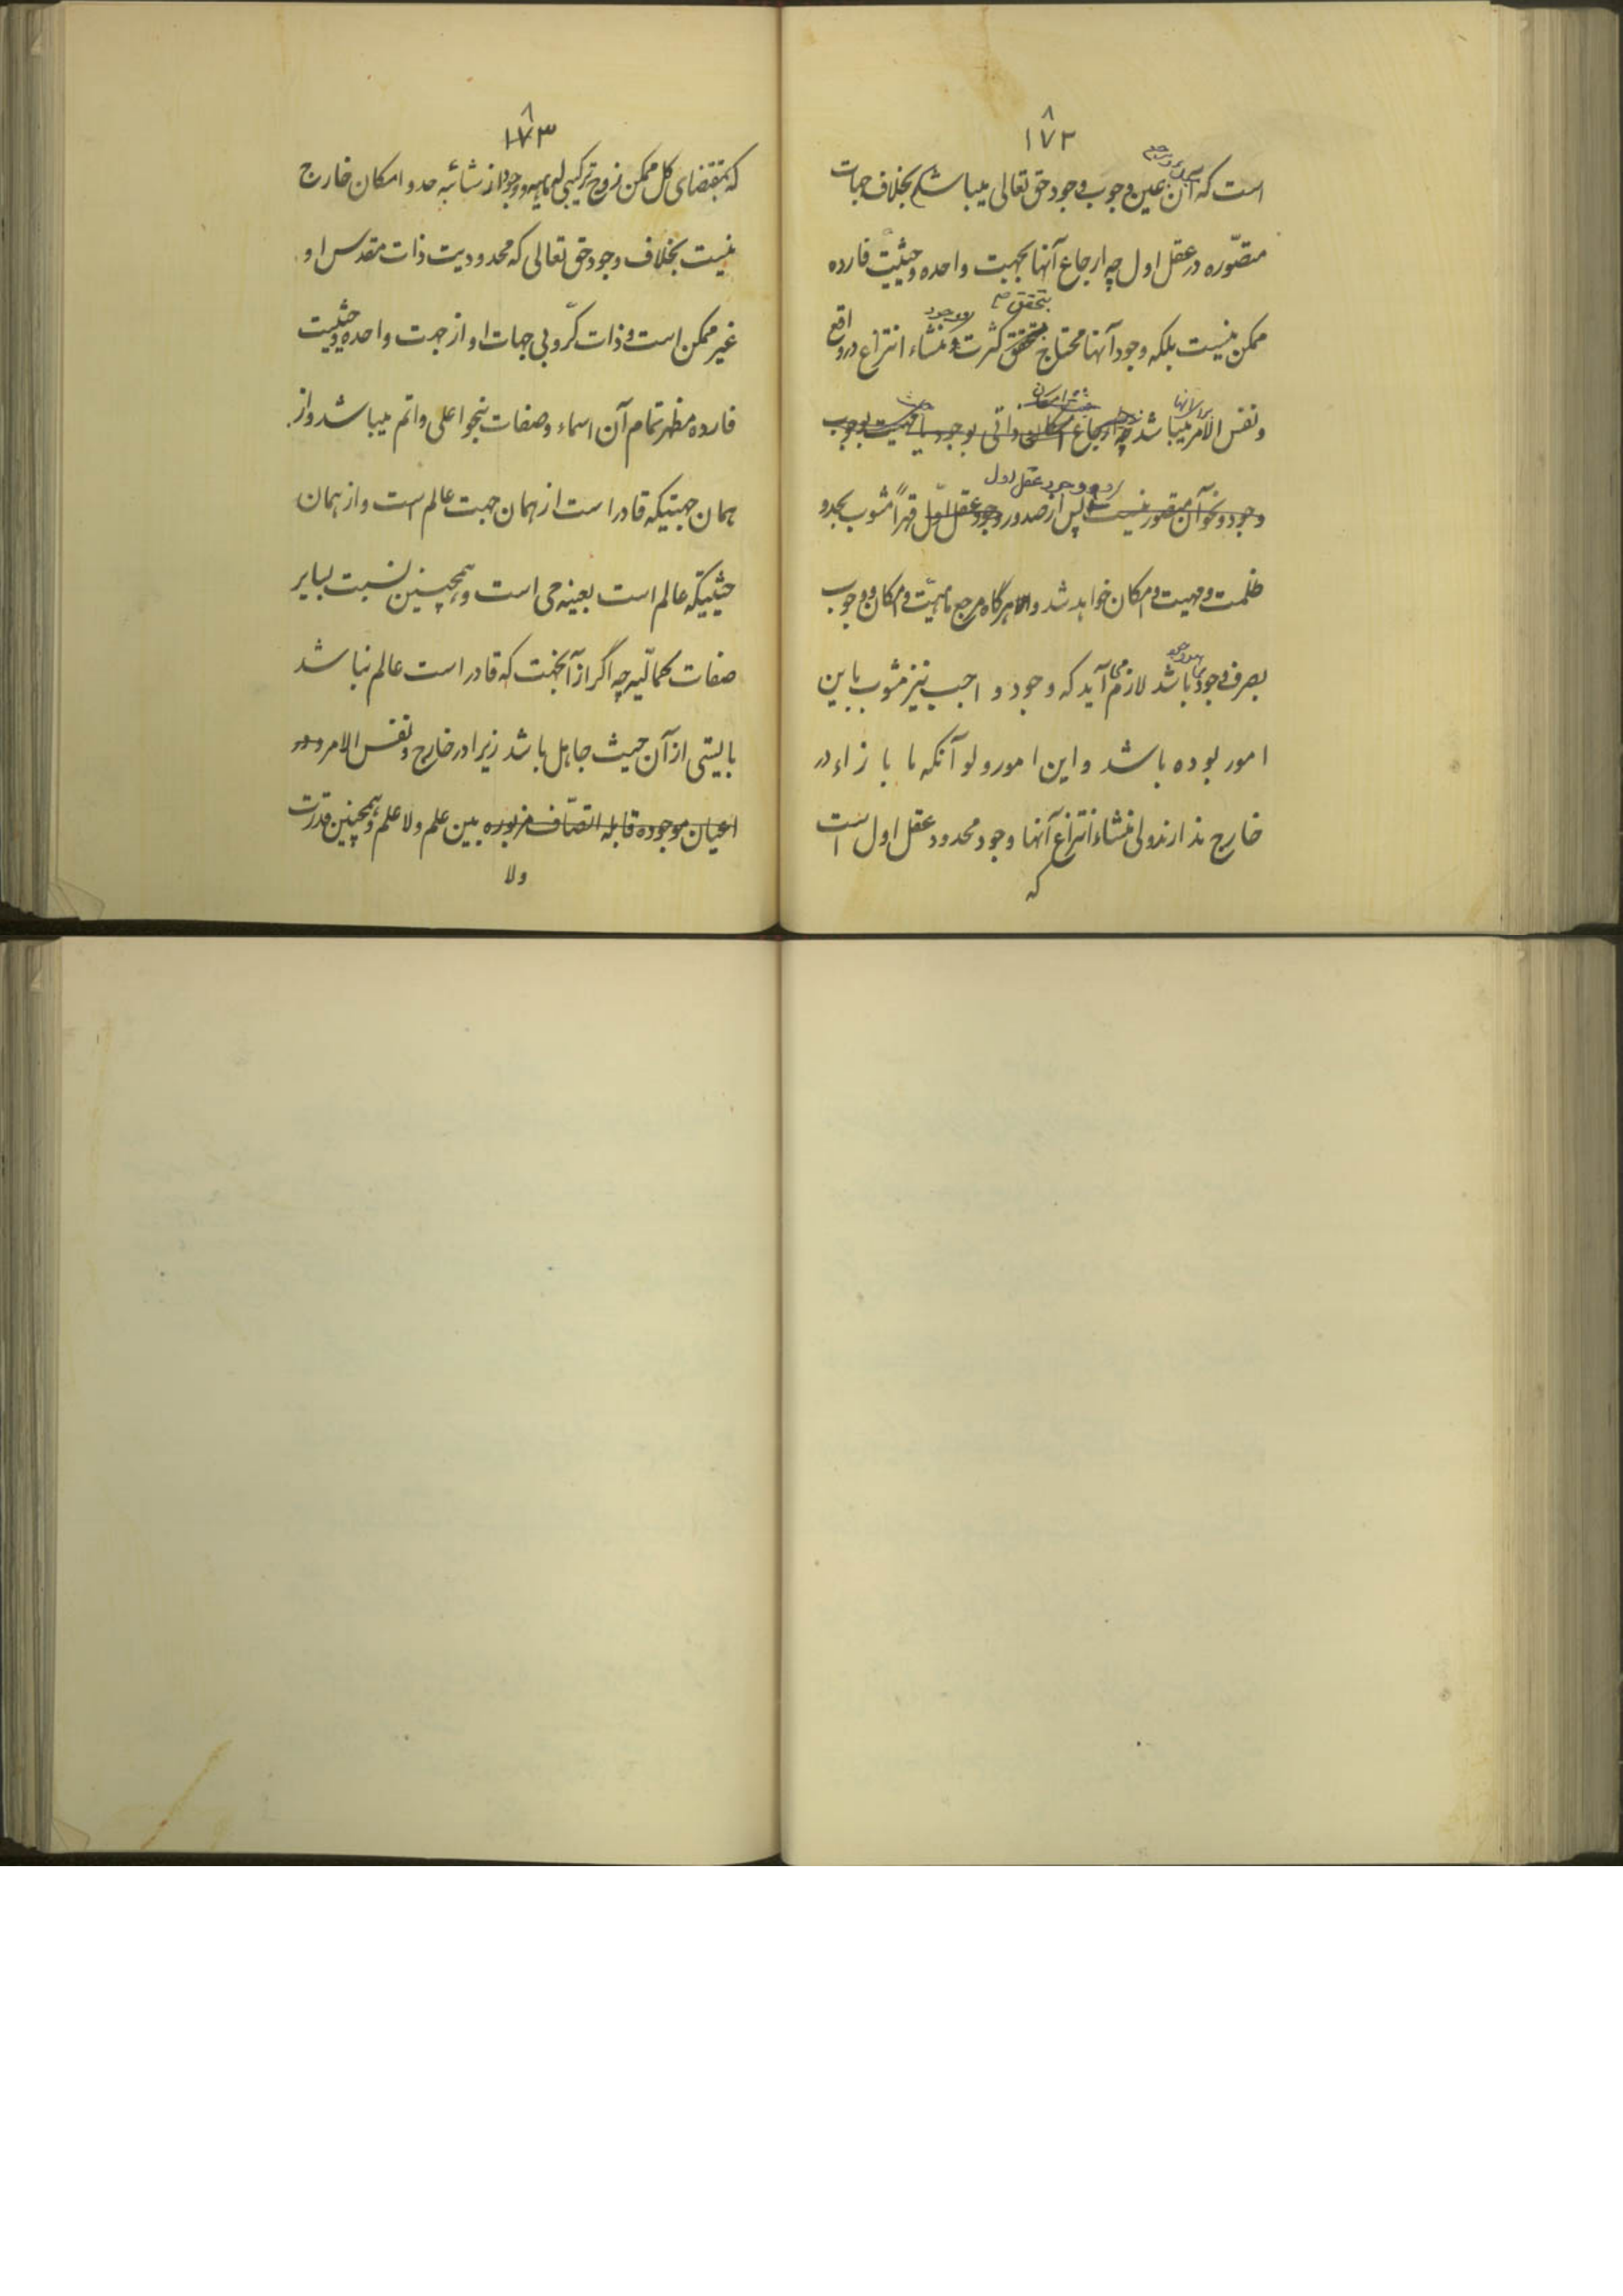 ۸
۱۷۲
است که آن عین وجوب وجود حق تعالی میباشد بخلاف جهات
متصّوره در عقل اول چه ارجاع آنها بجهت واحده و حیثیت فارده
بتحقق وجود
ممکن نیست بلکه وجود آنها محتاج بتحقق کثرت و منشاء انتزاع در واقع
ونفس الامر میباشد چه ارجاع امکان ذاتی بوجود یا مهیت بوجوب
وجود عقل اول
وجود و نحو آن متصور نیست پس از صدور وجود عقل اوّل قهراً مشوب بحدو
ظلمت و مهیت و امکان خواهد شد و هرگاه مرجع ماهیّت و امکان و وجوب
بصرف وجود باشد لازم می آید که وجود واجب نیز مشوب باین
امور بوده باشد و این امور ولو آنکه ما بازاء در
خارج ندارند ولی منشاء انتزاع آنها وجود محدود عقل اول است
که
۸
۱۷۳
که بمقتضای کل ممکن زوج ترکیبی له مهیه و وجود از شائبه حد و امکان خارج
نیست بخلاف وجود حق تعالی که محدودیت ذات مقدس او
غیر ممکن است و ذات کرّوبی جهات او از جهت واحده و حیثیت
فارده مظهر تمام آن اسماء و صفات بنحو اعلی و اتم میباشد و از
همان جهتیکه قادر است از همان جهت عالم است و از همان
حیثیتیکه عالم است بعینه حی است و همچنین نسبت بسایر
صفات کمالیّه چه اگر از آنجهت که قادر است عالم نباشد
بایستی از آن حیث جاهل باشد زیرا در خارج و نفس الامر و در
اعیان موجوده قابله اتصّاف مزبوره بین علم و لا علم و همچنین قدرت
ولا